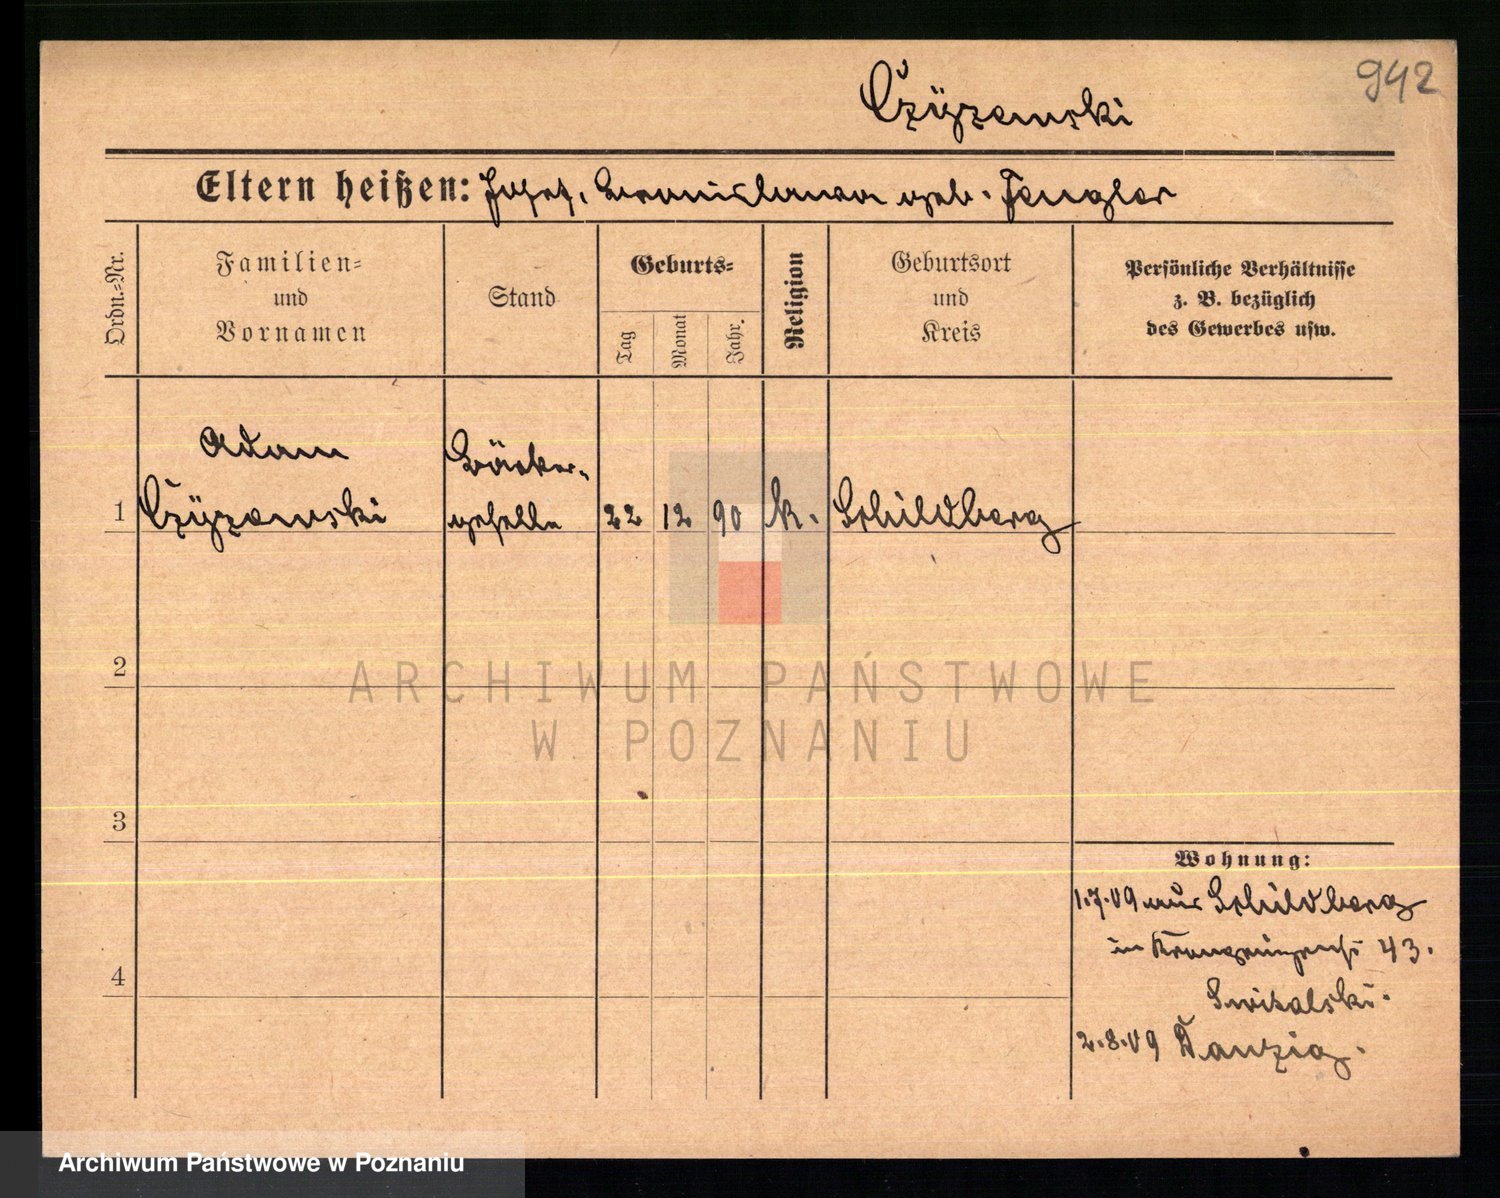 942
Czyzewski
Eltern heißen: Josef, Bronislawa geb. Fengler
Ordn.-Nr.
Familien-
und
Vornamen
Stand
Geburts-
Tag
Monat
Jahr.
Religion
Geburtsort
und
Kreis
Persönliche Verhältnisse
z. B. bezüglich
des Gewerbes usw.
Adam
Czyzewski
Bäcker-
geselle
1
22
12
90
k.
Schildberg
2
ARCHIWUM PAŃSTWOWE
W POZNANIU
3
4
Wohnung:
1.7.09 aus Schildberg
in 43.
Switalski.
2.8.09 Danzig.
Archiwum Państwowe w Poznaniu